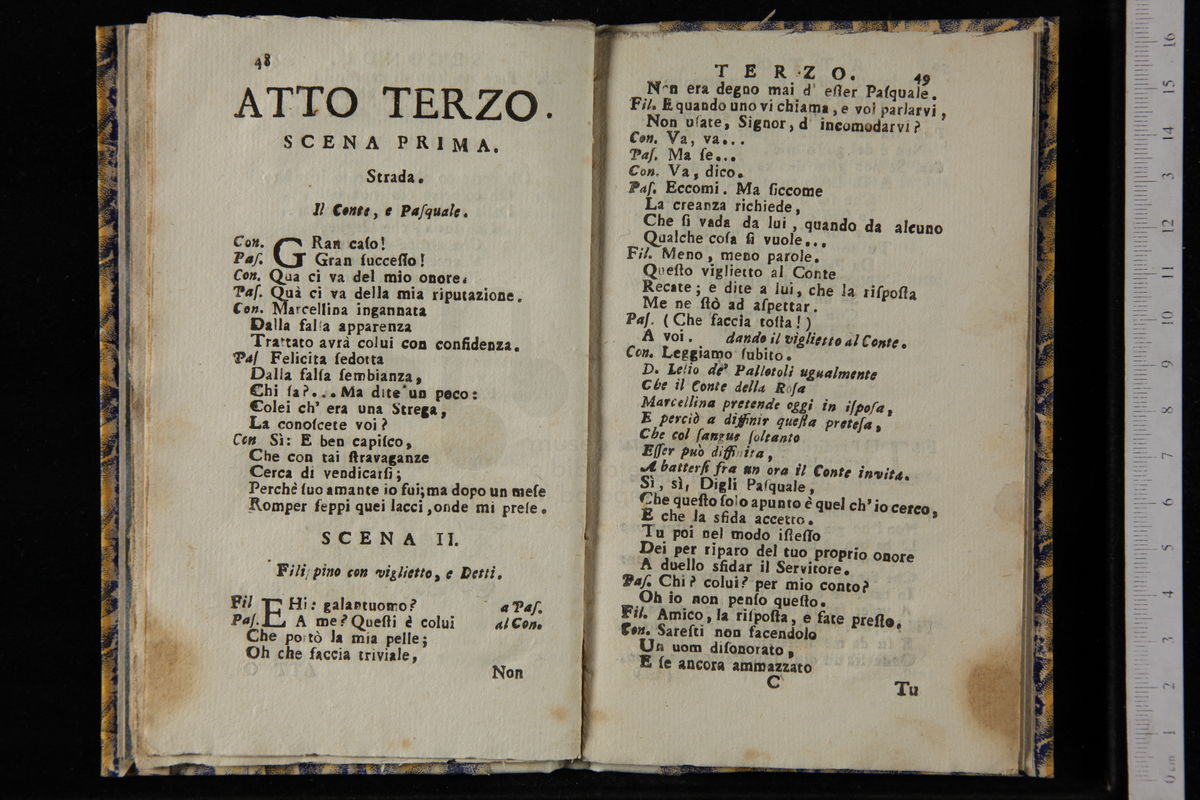 48
ATTO TERZO.
SCENA PRIMA.
Strada.
Il Conte, e Paſquale.
Con. GRan caſo!
Paſ. Gran ſucceſſo!
Con. Qua ci va del mio onore.
Paſ. Quà ci va della mia riputazione.
Con. Marcellina ingannata
Dalla falſa apparenza
Trattato avrà colui con confidenza.
Paſ Felicita ſedotta
Dalla falſa ſembianza,
Chi ſa?... Ma dite un poco:
Colei ch' era una Strega,
La conoſcete voi?
Con Sì: E ben capiſco,
Che con tai ſtravaganze
Cerca di vendicarſi;
Perchè ſuo amante io fui; ma dopo un meſe
Romper ſeppi quei lacci, onde mi preſe.
SCENA II.
Filippino con viglietto, e Detti.
Fil EHi: galantuomo? a Paſ.
Paſ. A me? Queſti è colui al Con.
Che portò la mia pelle;
Oh che faccia triviale,
Non
TERZO. 49
Non era degno mai d' eſſer Paſquale.
Fil. E quando uno vi chiama, e voi parlarvi,
Non uſate, Signor, d' incomodarvi?
Con. Va, va...
Paſ. Ma ſe...
Con. Va, dico.
Paſ. Eccomi. Ma ſiccome
La creanza richiede,
Che ſi vada da lui, quando da alcuno
Qualche coſa ſi vuole...
Fil. Meno, meno parole.
Queſto viglietto al Conte
Recate; e dite a lui, che la riſpoſta
Me ne ſtò ad aſpettar.
Paſ. (Che faccia toſta!)
A voi. dando il viglietto al Conte.
Con. Leggiamo ſubito.
D. Lelio de' Pallotoli ugualmente
Che il Conte della Roſa
Marcellina pretende oggi in iſpoſa,
E perciò a diffinir queſta preteſa,
Che col ſangue ſoltanto
Eſſer può diffinita,
A batterſi fra un ora il Conte invita.
Sì, sì, Digli Paſquale,
Che queſto ſolo apunto è quel ch' io cerco,
E che la sfida accetto.
Tu poi nel modo iſteſſo
Dei per riparo del tuo proprio onore
A duello sfidar il Servitore.
Paſ. Chi? colui? per mio conto?
Oh io non penſo queſto.
Fil. Amico, la riſpoſta, e fate preſto.
Con. Sareſti non facendolo
Un uom diſonorato,
E ſe ancora ammazzato
C
Tu
0 cm 1 2 3 4 5 6 7 8 9 10 11 12 3 14 15 16